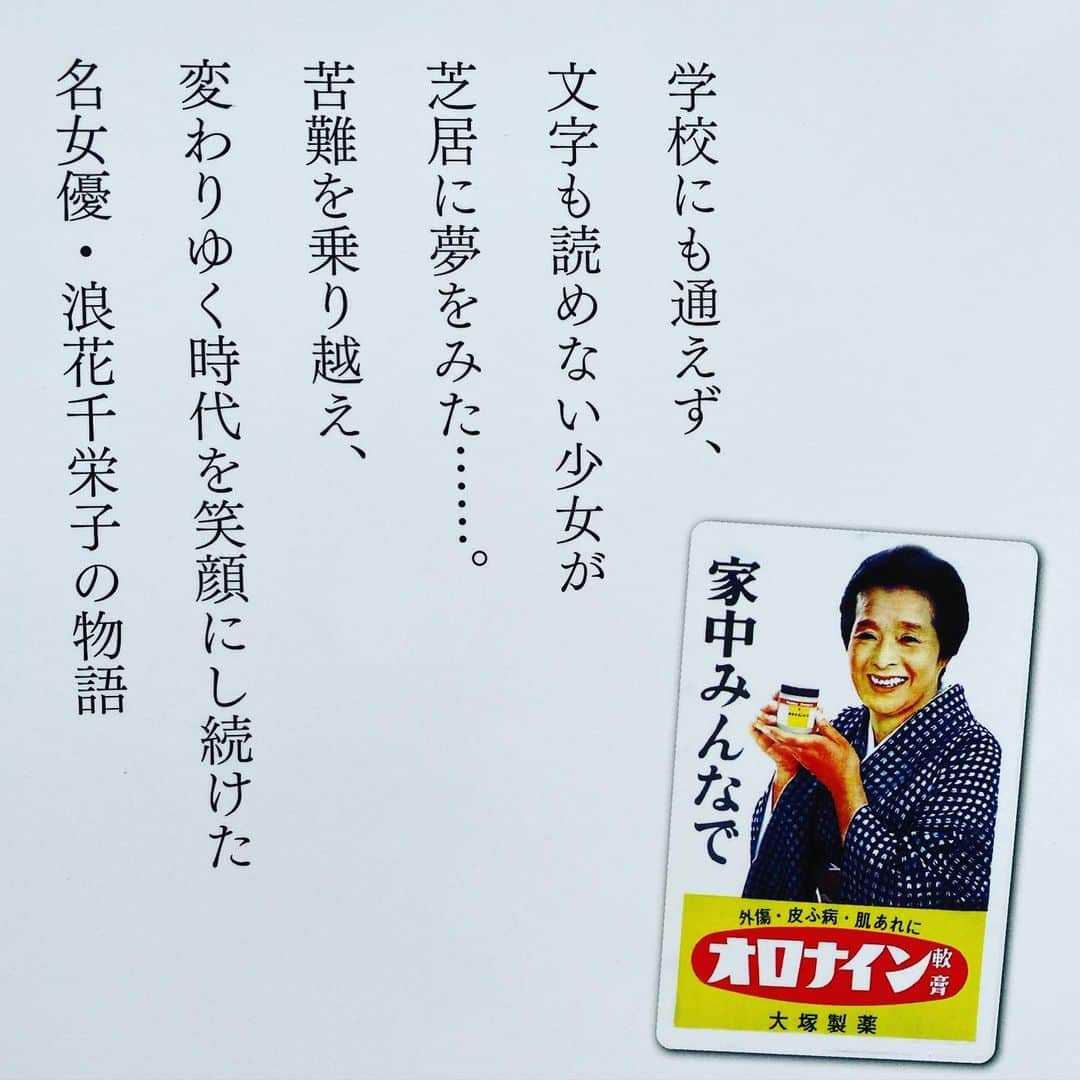 学校にも通えず、
文字も読めない少女が
芝居に夢をみた……。
苦難を乗り越え、
変わりゆく時代を笑顔にし続けた
名女優・浪花千栄子の物語
家中みんなで
外傷・皮ふ病・肌あれに
オロナイン軟膏
大塚製薬